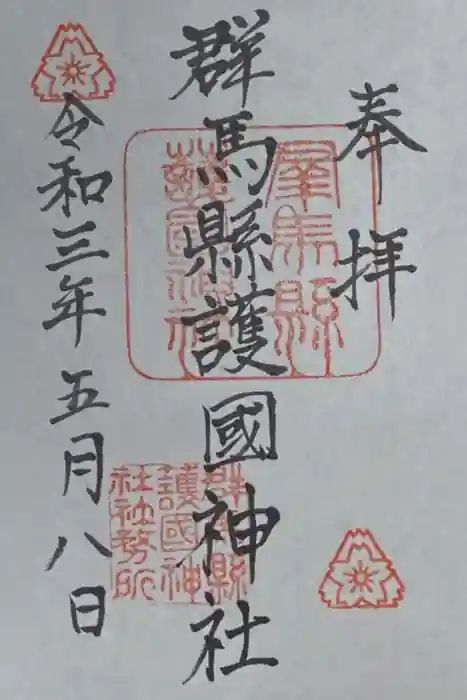 奉拝
群馬縣護國神社
令和三年五月八日
群馬縣
護國神社
群馬縣
護國神
社社務所